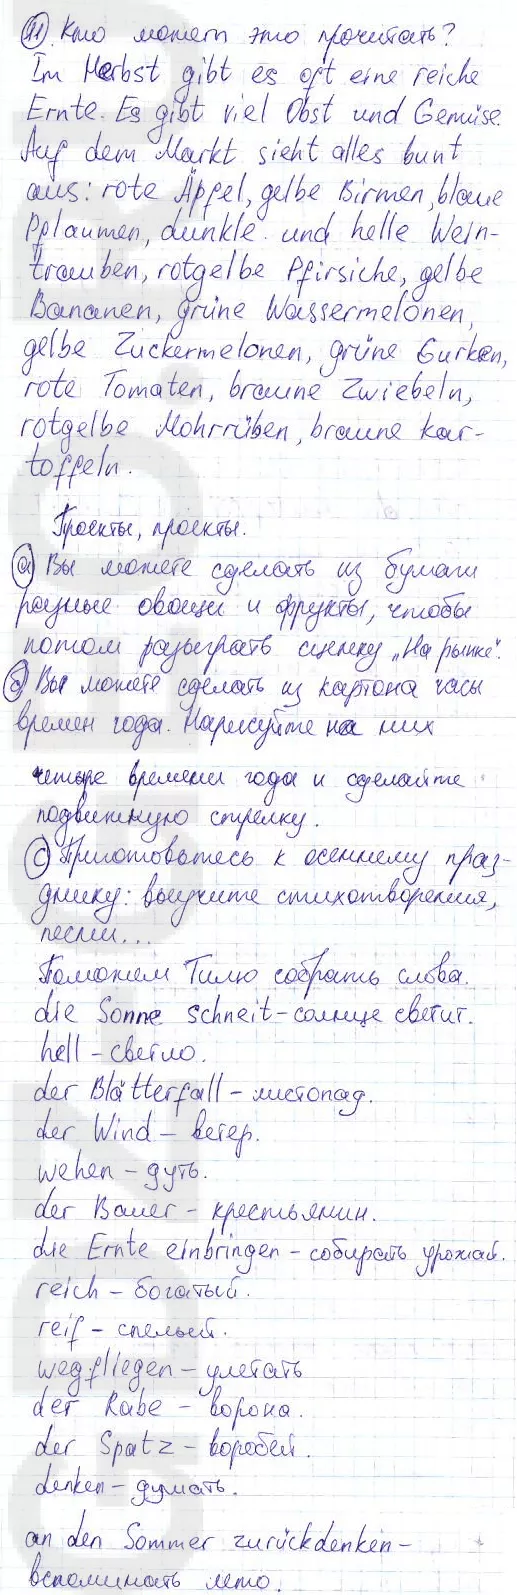 11. Кто может это прочитать?
Im Herbst gibt es oft eine reiche
Ernte. Es gibt viel Obst und Gemüse.
Auf dem Markt sieht alles bunt
aus: rote Äpfel, gelbe Birnen, blaue
Pflaumen, dunkle und helle Wein-
trauben, rotgelbe Pfirsiche, gelbe
Bananen, grüne Wassermelonen,
gelbe Zuckermelonen, grüne Gurken,
rote Tomaten, braune Zwiebeln,
rotgelbe Mohrrüben, braune Kar-
toffeln.
Проекты, проекты.
a) Вы можете сделать из бумаги
разные овощи и фрукты, чтобы
потом разыграть сценку „На рынке".
Вы можете сделать из картона часы
времён года. Нарисуйте на них
четыре времени года и сделайте
подвижную стрелку.
c) Приготовьтесь к осеннему праз-
днику: выучите стихотворения,
песни...
Поможем Тилю собрать слова.
die Sonne schneit - солнце светит.
hell - светло.
der Blätterfall - листопад.
der Wind - ветер.
wehen - дуть.
der Bauer - крестьянин.
die Ernte einbringen - собирать урожай.
reich - богатый.
reif - спелый.
wegfliegen - улетать
der Rabe - ворона.
der Spatz - воробей.
denken - думать.
an den Sommer zurückdenken -
вспоминать лето.
GDZ-GEO.RU